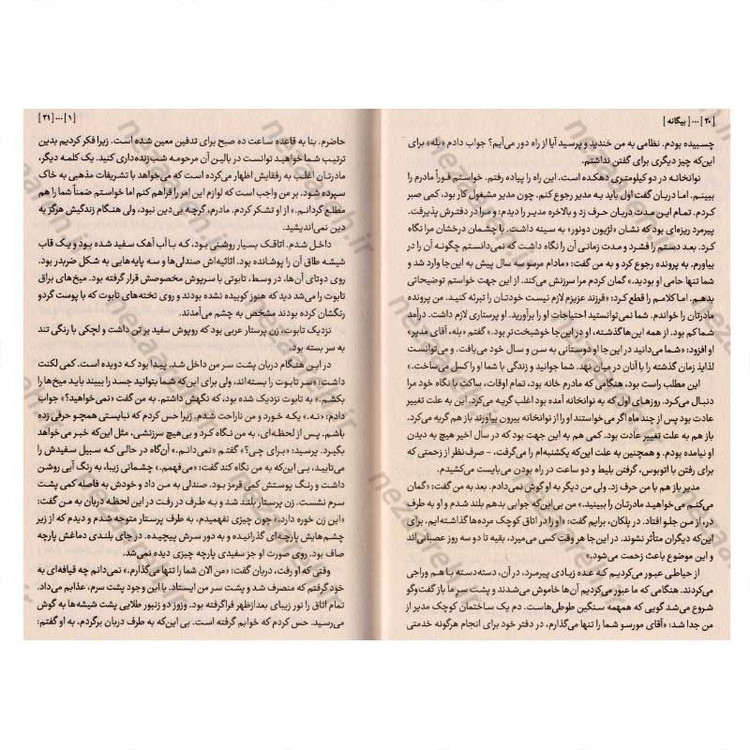 [۲۰] ... [ بیگانه ]
چسبیده بودم. نظامی به من خندید و پرسید آیا از راه دور می‌آیم؟ جواب دادم «بله» برای
این‌که چیز دیگری برای گفتن نداشتم.
نوانخانه در دو کیلومتری دهکده است. این راه را پیاده رفتم. خواستم فوراً مادرم را
ببینم. اما دربان گفت اول باید به مدیر رجوع کنم. چون مدیر مشغول کار بود، کمی صبر
کردم. تمام این مدت دربان حرف زد و بالاخره مدیر را دیدم: و مرا در دفترش پذیرفت.
پیرمرد ریزه‌ای بود که نشان «لژیون دونور» به سینه داشت. با چشمان درخشان مرا نگاه
کرد. بعد دستم را فشرد و مدت زمانی آن را نگاه داشت که نمی‌دانستم چگونه آن را در
بیاورم. به پرونده رجوع کرد و به من گفت: «مادام مرسو سه سال پیش به این‌جا وارد شد و
شما تنها حامی او بودید.» گمان کردم مرا سرزنش می‌کند. از این جهت خواستم توضیحاتی
بدهم. اما کلامم را قطع کرد: «فرزند عزیزم لازم نیست خودتان را تبرئه کنید. من پرونده
مادرتان را خواندم. شما نمی‌توانستید احتیاجات او را برآورید. او پرستاری لازم داشت. درآمد
شما کم بود. از همه این‌ها گذشته، او در این‌جا خوشبخت‌تر بود.» گفتم «بله، آقای مدیر»
او افزود: «شما می‌دانید در این‌جا او دوستانی به سن و سال خود می‌یافت. و می‌توانست
لذایذ زمان گذشته را با آنان در میان نهد. شما جوانید و زندگی با شما او را کسل می‌ساخت.»
این مطلب راست بود. هنگامی که مادرم خانه بود، تمام اوقات، ساکت با نگاه خود مرا
دنبال می‌کرد. روزهای اول که به نوانخانه آمده بود اغلب گریه می‌کرد. این به علت تغییر
عادت بود پس از چند ماه اگر می‌خواستند او را از نوانخانه بیرون بیاورند باز هم گریه می‌کرد.
باز هم به علت تغییر عادت بود. کمی هم به این جهت بود که در سال اخیر هیچ به دیدن
او نیامده بودم. و همچنین به علت این‌که یکشنبه‌ام را می‌گرفت، – صرف‌نظر از زحمتی که
برای رفتن با اتوبوس، گرفتن بلیط و دو ساعت در راه بودن می‌بایست می‌کشیدم.
مدیر باز هم با من حرف زد. ولی من دیگر به او گوش نمی‌دادم. بعد به من گفت: «گمان
می‌کنم می‌خواهید مادرتان را ببینید.» من بی‌این‌که جوابی بدهم بلند شدم و او به طرف
در، از من جلو افتاد. در پلکان، برایم گفت: «او را در اتاق کوچک مرده‌ها گذاشته‌ایم. برای
این‌که دیگران متأثر نشوند. در این‌جا هر وقت کسی می‌میرد، بقیه تا دو سه روز عصبانی‌اند
و این موضوع باعث زحمت می‌شود.»
از حیاطی عبور می‌کردیم که عده زیادی پیرمرد، در آن، دسته‌دسته با هم وراجی
می‌کردند. هنگامی که ما عبور می‌کردیم آن‌ها خاموش می‌شدند و پشت سر ما باز گفت‌وگو
شروع می‌شد گویی که همهمه سنگین طوطی‌هاست. دم یک ساختمان کوچک مدیر از
من جدا شد: «آقای مورسو شما را تنها می‌گذارم. در دفتر خود برای انجام هرگونه خدمتی
[۱] ... [۲۱]
حاضرم. بنا به قاعده ساعت ده صبح برای تدفین معین شده است. زیرا فکر کردیم بدین
ترتیب شما خواهید توانست در بالین آن مرحومه شب‌زنده‌داری کنید. یک کلمه دیگر،
مادرتان اغلب به رفقایش اظهار می‌کرده است که می‌خواهد با تشریفات مذهبی به خاک
سپرده شود. بر من واجب است که لوازم این امر را فراهم کنم اما خواستم ضمناً شما را هم
مطلع گردانم.» از او تشکر کردم. مادرم، گرچه بی‌دین نبود، ولی هنگام زندگیش هرگز به
دین نمی‌اندیشید.
داخل شدم. اتاقک بسیار روشنی بود، که با آب آهک سفید شده بود و یک قاب
شیشه طاق آن را پوشانده بود. اثاثیه‌اش صندلی‌ها و سه پایه‌هایی به شکل ضربدر بود.
روی دوتای آن‌ها، در وسط، تابوتی با سرپوش مخصوصش قرار گرفته بود. میخ‌های براق
تابوت را می‌شد دید که هنوز کوبیده نشده بودند و روی تخته‌های تابوت که با پوست گردو
رنگشان کرده بودند مشخص به چشم می‌آمدند.
نزدیک تابوت، زن پرستار عربی بود که روپوش سفید بر تن داشت و لچکی با رنگی تند
به سر بسته بود.
در این هنگام دربان پشت سر من داخل شد. پیدا بود که دویده است. کمی لکنت
داشت: «سر تابوت را بسته‌اند، ولی برای این‌که شما بتوانید جسد را ببینید باید میخ‌ها را
بکشم.» به تابوت نزدیک شده بود، که نگهش داشتم. به من گفت: «نمی‌خواهید؟» جواب
دادم: «نه.» یکه خورد و من ناراحت شدم. زیرا حس کردم که نبایستی همچو حرفی زده
باشم. پس از لحظه‌ای، به من نگاه کرد و بی‌هیچ سرزنشی، مثل این‌که خبر می‌خواهد
بگیرد. پرسید: «برای چی؟» گفتم «نمی‌دانم.» آن‌گاه در حالی که سبیل سفیدش را
می‌تابید، بی‌این‌که به من نگاه کند گفت: «می‌فهمم.» چشمانی زیبا، به رنگ آبی روشن
داشت و رنگ پوستش کمی قرمز بود. صندلی به من داد و خودش به فاصله کمی پشت
سرم نشست. زن پرستار بلند شد و به طرف در رفت در این لحظه دربان به من گفت:
«این زن خوره دارد.» چون چیزی نفهمیدم، به طرف پرستار متوجه شدم و دیدم که از زیر
چشم‌هایش پارچه‌ای گذرانیده و به دور سرش پیچیده. در جای بلندی دماغش پارچه
صاف بود. روی صورت او جز سفیدی پارچه چیزی دیده نمی‌شد.
وقتی که او رفت، دربان گفت: «من الان شما را تنها می‌گذارم.» نمی‌دانم چه قیافه‌ای به
خود گرفتم که منصرف شد و پشت سر من ایستاد. با این وجود پشت سرم، عذابم می‌داد.
تمام اتاق را نور زیبای بعدازظهر فراگرفته بود. وزوز دو زنبور طلایی پشت شیشه‌ها به گوش
می‌رسید. حس کردم که خوابم گرفته است. بی این‌که به طرف دربان برگردم. به او گفتم: